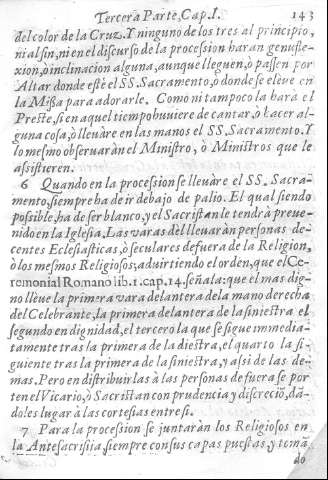 Tercera Parte, Cap. I. 143
del color de la Cruz. Y ninguno de los tres al principio,
ni al fin, ni en el discurso de la procession haran genufle-
xion, ò inclinacion alguna, aunque lleguen, ò passen por
Altar donde estè el SS. Sacramento, ò donde se eleve en
la Missa para adorarle. Como ni tampoco la harà el
Preste, si en aquel tiempo huuiere de cantar, ò hacer al-
guna cosa, ò lleuàre en las manos el SS. Sacramento. Y
lo mesmo obseruaràn el Ministro, ò Ministros que le
assistieren.
6 Quando en la procession se lleuàre el SS. Sacra-
mento, siempre ha de ir debajo de palio. El qual siendo
possible, ha de ser blanco, y el Sacristan le tendrà preue-
nido en la Iglesia. Las varas dèl lleuaràn personas de-
centes Eclesiasticas, ò seculares de fuera de la Religion,
ò los mesmos Religiosos; aduirtiendo el orden, que el Ce-
remonial Romano lib. 1. cap. 14. señala: que el mas dig-
no lleue la primera vara delantera de la mano derecha
del Celebrante, la primera delantera de la siniestra el
segundo en dignidad, el tercero la que se sigue immedia-
tamente tras la primera de la diestra, el quarto la si-
guiente tras la primera de la siniestra, y assi de las de-
mas. Pero en distribuirlas à las personas de fuera se por-
te el Vicario, ò Sacristan con prudencia y discreciõ, dã-
doles lugar à las cortesias entre si.
7 Para la procession se juntaràn los Religiosos en
la Antesacristia, siempre con sus capas puestas, y tomã-
do